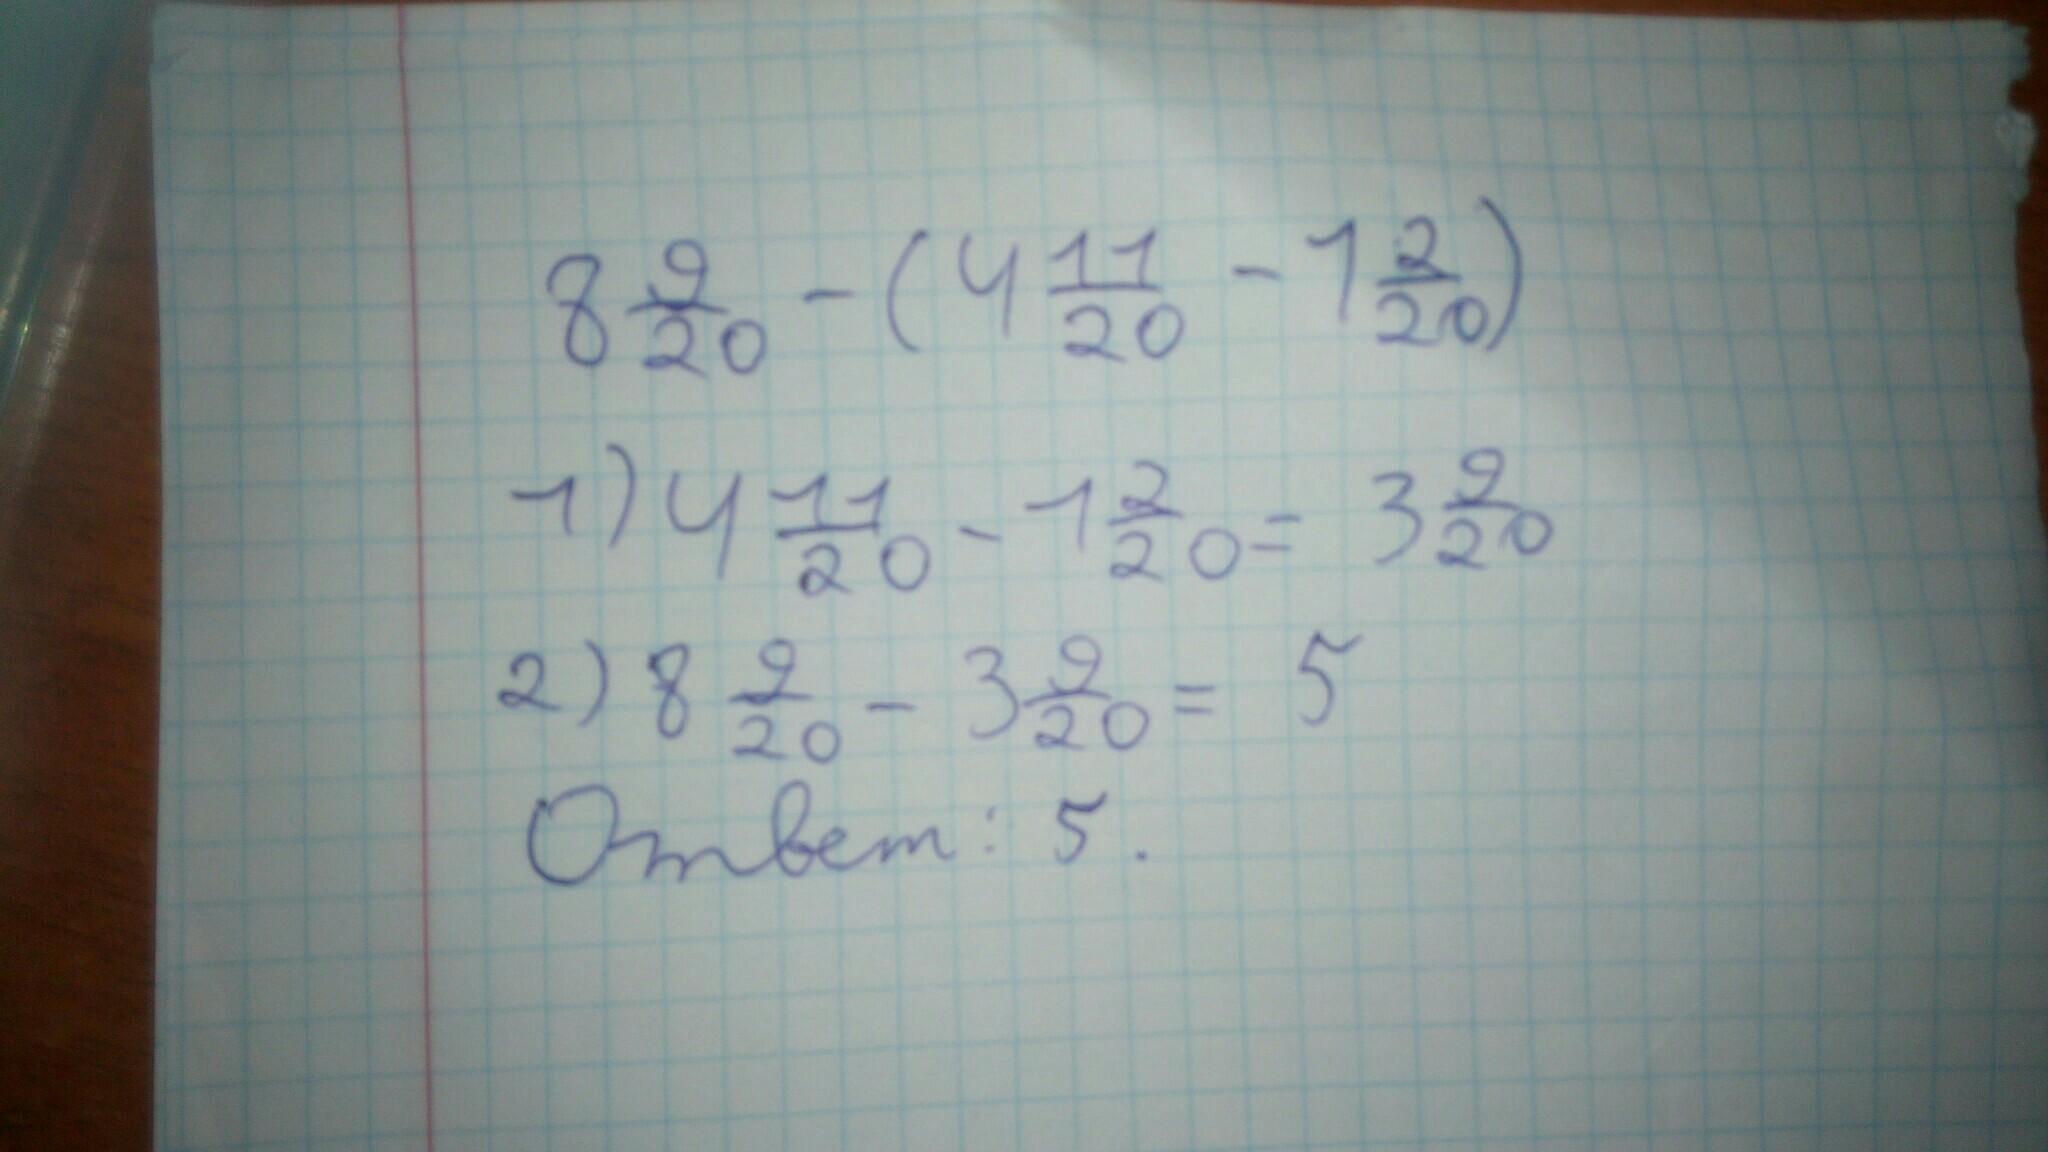 8 9/20 - (4 11/20 - 1 2/20)
1) 4 11/20 - 1 2/20 = 3 9/20
2) 8 9/20 - 3 9/20 = 5
Ответ: 5.